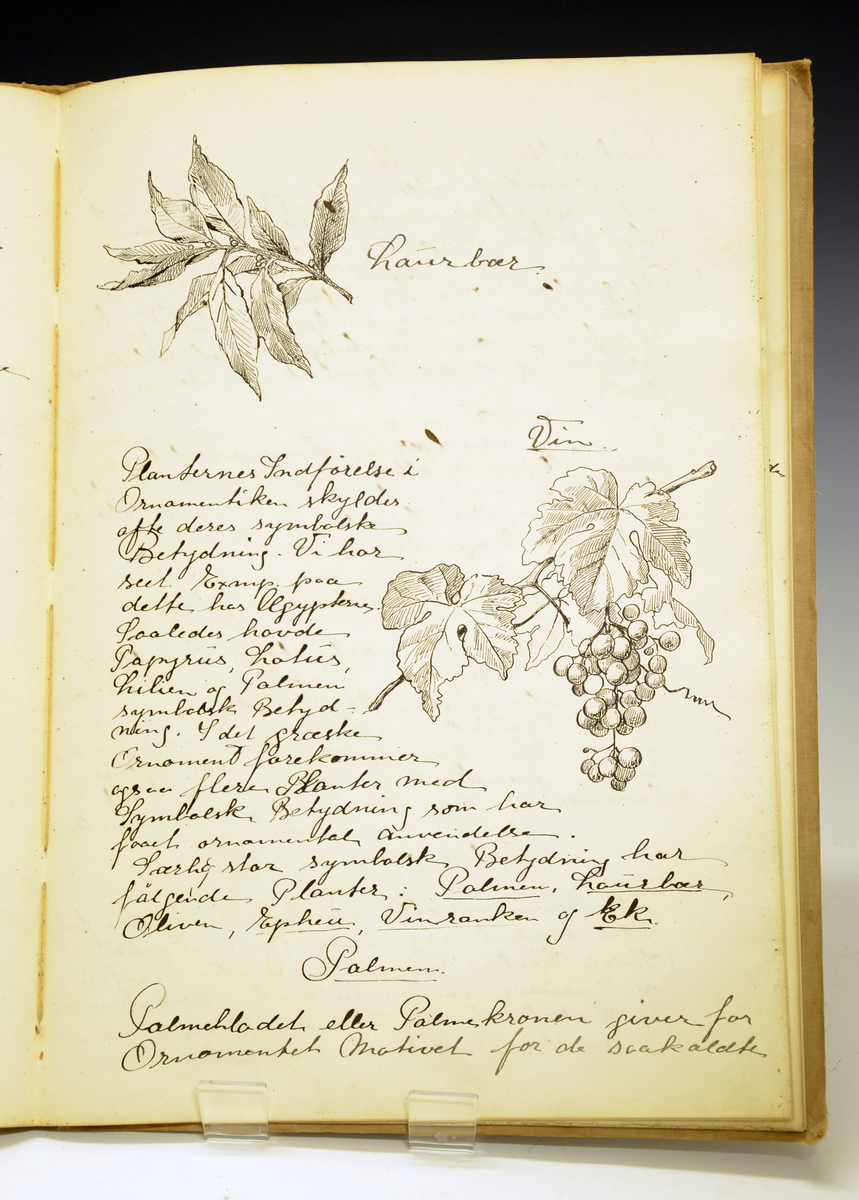 Laürbær.
Vin.
Planternes Indförelse i
Ornamentiken skyldes
ofte deres symbolske
Betydning. Vi har
seet Exmp. paa
dette hos Ægypterne.
Saaledes havde
Papyrüs, Lotüs,
Lilien og Palmen
symbolsk Betyd-
ning. I det græske
Ornament forekommer
ogsaa flere Planter med
Symbolsk Betydning som har
faaet ornamental anvendelse.
Særlig stor symbolsk Betydning har
fölgende Planter: Palmen, Laürbær,
Oliven, Epheü, Vinranken og Ek.
Palmen.
Palmebladet eller Palmekronen giver for
Ornamentet Motivet for de saakaldte